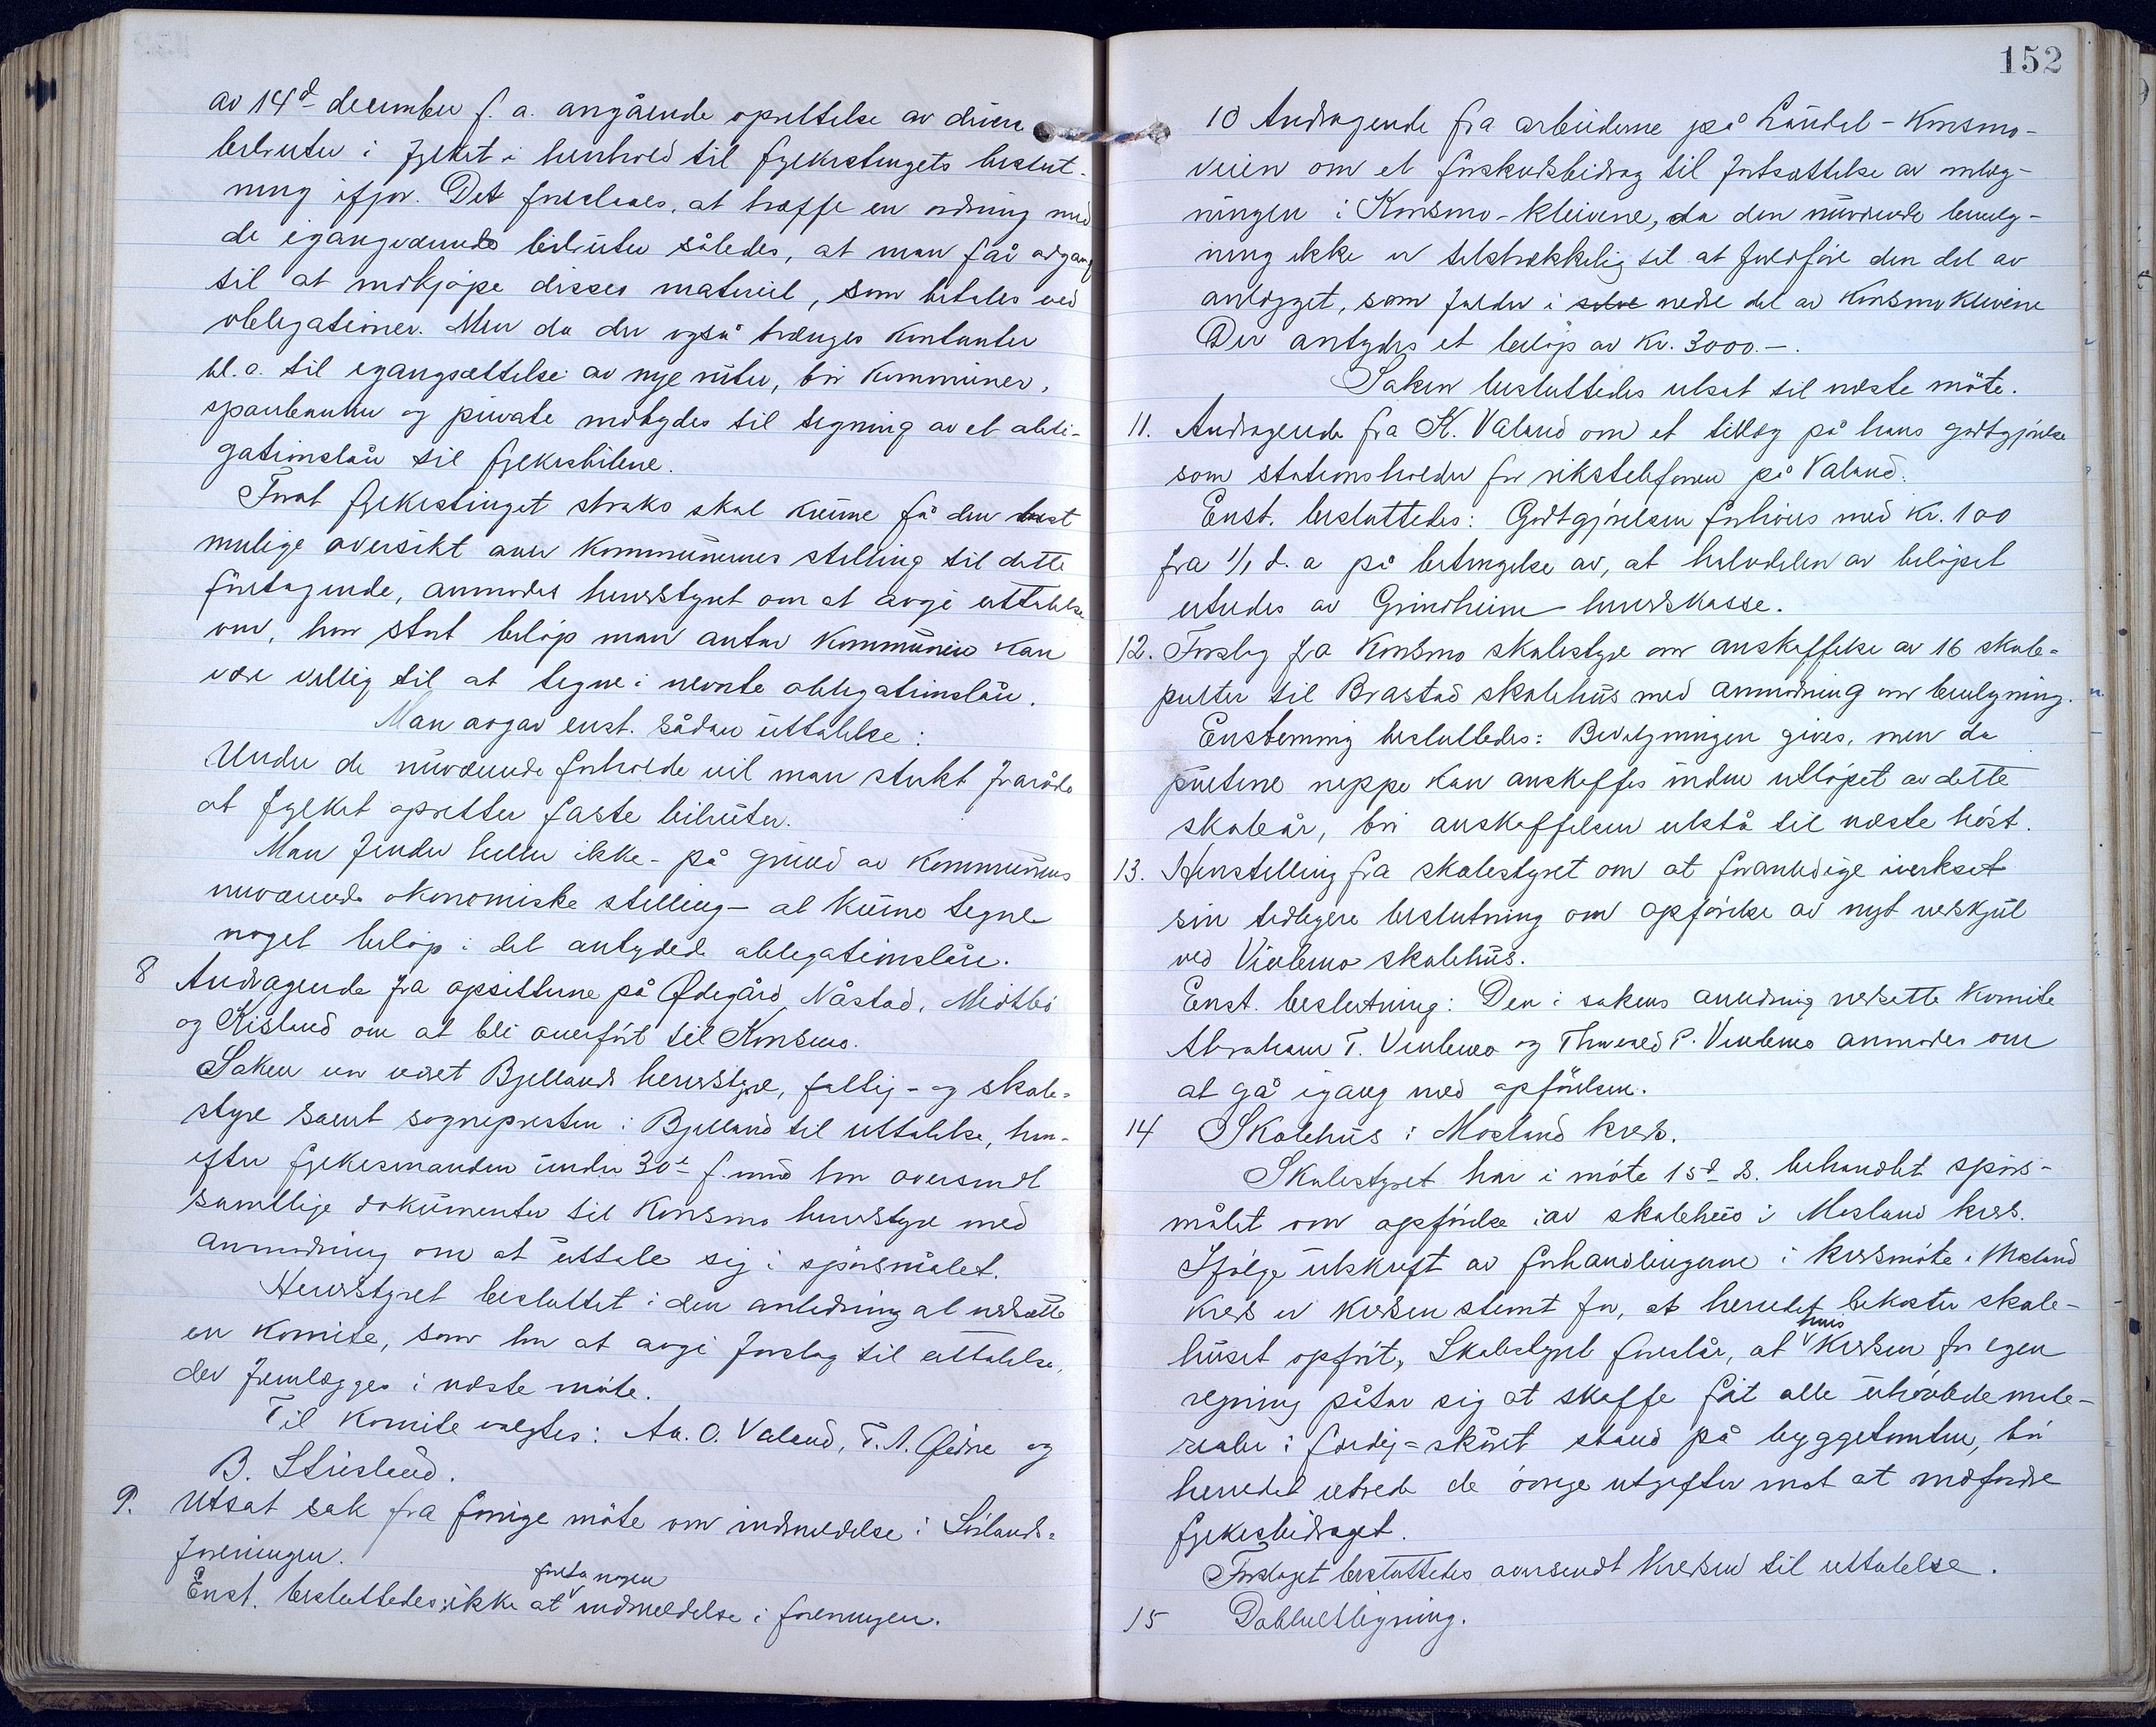 av 14d december f. a. angående oprettelse av diverse
bilruter i fylket i henhold til fylkestingets beslut-
ning ifjor. Det foreslaaes, at træffe en ordning med
de igangværende bilruter således, at man får adgang
til at indkjøpe disses materiel, som betales ved
obligationer. Men da der også trænges kontanter
bl. a. til igangsættelse av nye ruter, bør kommuner,
sparebanker og private indbydes til tegning av et obli-
gationslån til fylkesbilene.
Forat fylkestinget straks skal kunne få den best
mulige oversikt over kommunernes stilling til dette
foretagende, anmodes herredstyret om at avgi uttalelse
om, hvor stort beløp man antar kommunen kan
være villig til at tegne i nevnte obligationslån.
Man avgav enst. sådan uttalelse:
Under de nuværende forholde vil man sterkt fraråde
at fylket opretter faste bilruter.
Man finder heller ikke - på grund av kommunens
nuværende økonomiske stilling - at kunne tegne
noget beløp i det antydede obligationslån.
8 Andragende fra opsitterne på Ødegård, Nåstad, Midtbø
og Kisland om at bli overført til Konsmo.
Saken har været Bjelland herredstyre, fattig- og skole-
styre samt sognepresten i Bjelland til uttalelse, hvor-
efter fylkesmanden under 30te f. mnd har oversendt
samtlige dokumenter til Konsmo herredstyre med
anmodning om at uttale sig i spørsmålet.
Herredstyret besluttet i den anledning at nedsætte
en komite, som har at avgi forslag til uttalelse,
der fremlægges i næste møte.
Til komite valgtes: Aa. O. Valand, T. A. Øidne og
B. Stusland.
9. Utsat sak fra forrige møte om indmeldelse i Sørlands-
foreningen.
Enst. besluttedes ikke at foreta nogen indmeldelse i foreningen.
152
10 Andragende fra arbeiderne på Laudal - Konsmo-
veien om et forskudsbidrag til fortsættelse av omlæg-
ningen i Konsmo-kleivene, da den nuværende bevilg-
ning ikke er tilstrækkelig til at fuldføre den del av
anlægget, som falder i selve nedre del av Konsmokleivene
Der antydes et beløp av Kr. 3000.-.
Saken besluttedes utsat til næste møte.
11. Andragende fra K. Valand om et tillæg på hans godtgjørelse
som stationsholder for rikstelefonen på Valand.
Enst. besluttedes: Godtgjørelsen forhøies med Kr. 100
fra 1/1 d. a på betingelse av, at halvdelen av beløpet
utredes av Grindheim herredskasse.
12. Forslag fra Konsmo skolestyre om anskaffelse av 16 skole-
pulter til Brastad skolehus med anmodning om bevilgning.
Enstemmig besluttedes: Bevilgningen gives, men da
pultene neppe kan anskaffes inden utløpet av dette
skoleår, bør anskaffelsen utstå til næste høst.
13. Henstilling fra skolestyret om at foranledige iverksat
sin tidligere beslutning om opførelse av nyt vedskjul
ved Vivlemo skolehus.
Enst. beslutning: Den i sakens anledning nedsatte komite
Abraham T. Vivlemo og Thorvald P. Vivlemo anmodes om
at gå igang med opførelsen.
14 Skolehus i Mosland kreds.
Skolestyret har i møte 15d ds. behandlet spørs-
målet om opførelse av skolehus i Mosland kreds.
Ifølge utskrift av forhandlingerne i kredsmøte i Mosland
kreds er kredsen stemt for, at herredet bekoster skole-
huset opført. Skolestyret foreslår, at hvis kredsen for egen
regning påtar sig at skaffe frit alle uhøvlede mate-
rialer i færdig-skåret stand på byggetomten, bør
herredet utrede de øvrige utgifter mot at indfordre
fylkesbidraget.
Forslaget besluttedes oversendt kredsen til uttalelse.
15 Dobbeltligning.